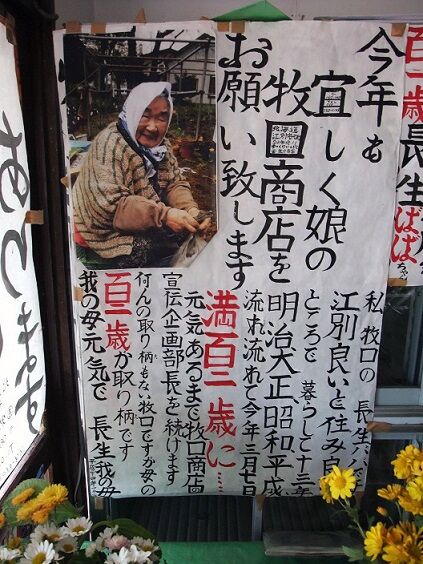 百二歳長生ばば
今年も
宜しく娘の
牧口商店を
お願い致します
私 牧口の 長生バ
江別良いと住み良
ところで 暮らして十三
明治 大正 昭和 平成
流れ流れて今年三月七日
満百二歳に……
元気あるまで牧口商店の
宣伝企画部長を続けます
何んの取り柄もない牧口ですが母の
百二歳が取り柄です
我の母元気で 長生我の母